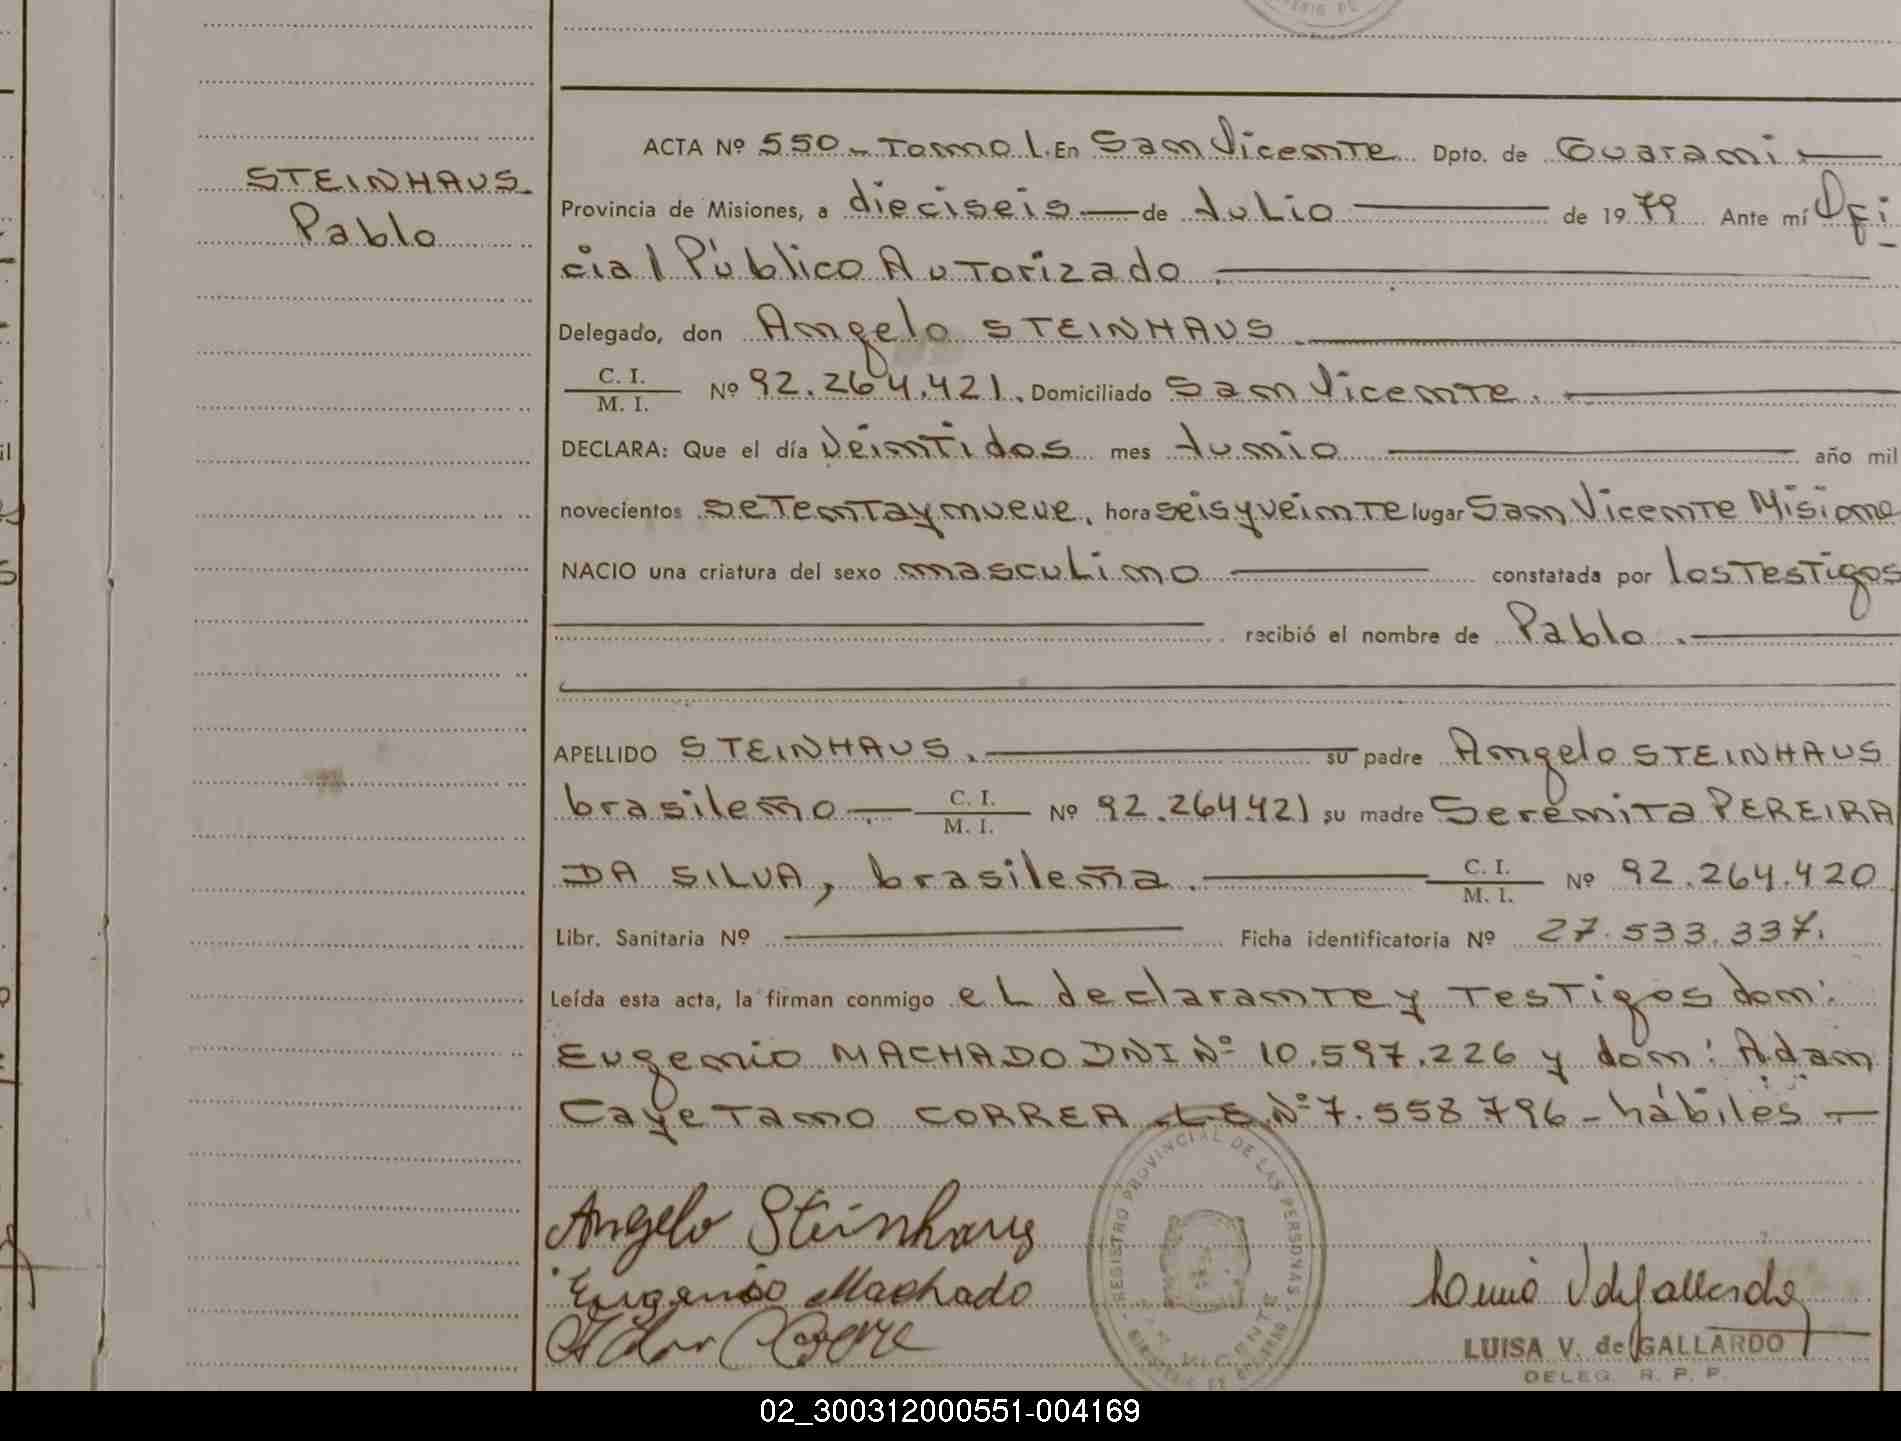 STEINHAUS
Pablo
ACTA Nº 550 - Tomo 1. En San Vicente Dpto. de Guarani
Provincia de Misiones, a dieciseis de Julio de 1979 Ante mí Ofi
cial Público Autorizado
Delegado, don Angelo STEINHAUS
C. I.
M. I. Nº 92.264.421. Domiciliado San Vicente.
DECLARA: Que el día Veintidos mes Junio año mil
novecientos setenta y nueve, hora seis y veinte lugar San Vicente Misione
NACIO una criatura del sexo masculino constatada por los Testigos
recibió el nombre de Pablo.
APELLIDO STEINHAUS. su padre Angelo STEINHAUS
brasileño C. I. M. I. Nº 92.264.421 su madre Serenita PEREIRA
DA SILVA, brasileña. C. I. M. I. Nº 92.264.420
Libr. Sanitaria Nº Ficha identificatoria Nº 27.533.337.
Leída esta acta, la firman conmigo el declarante y Testigos don:
Eugenio MACHADO DNI Nº 10.597.226 y don: Adan
Cayetano CORREA LE Nº 7.558 796 - hábiles -
REGISTRO PROVINCIAL DE LAS PERSONAS
VICENTE
Angelo Steinhaus
Eugenio Machado
LUISA V. de GALLARDO
DELEG. R. P. P.
02_300312000551-004169